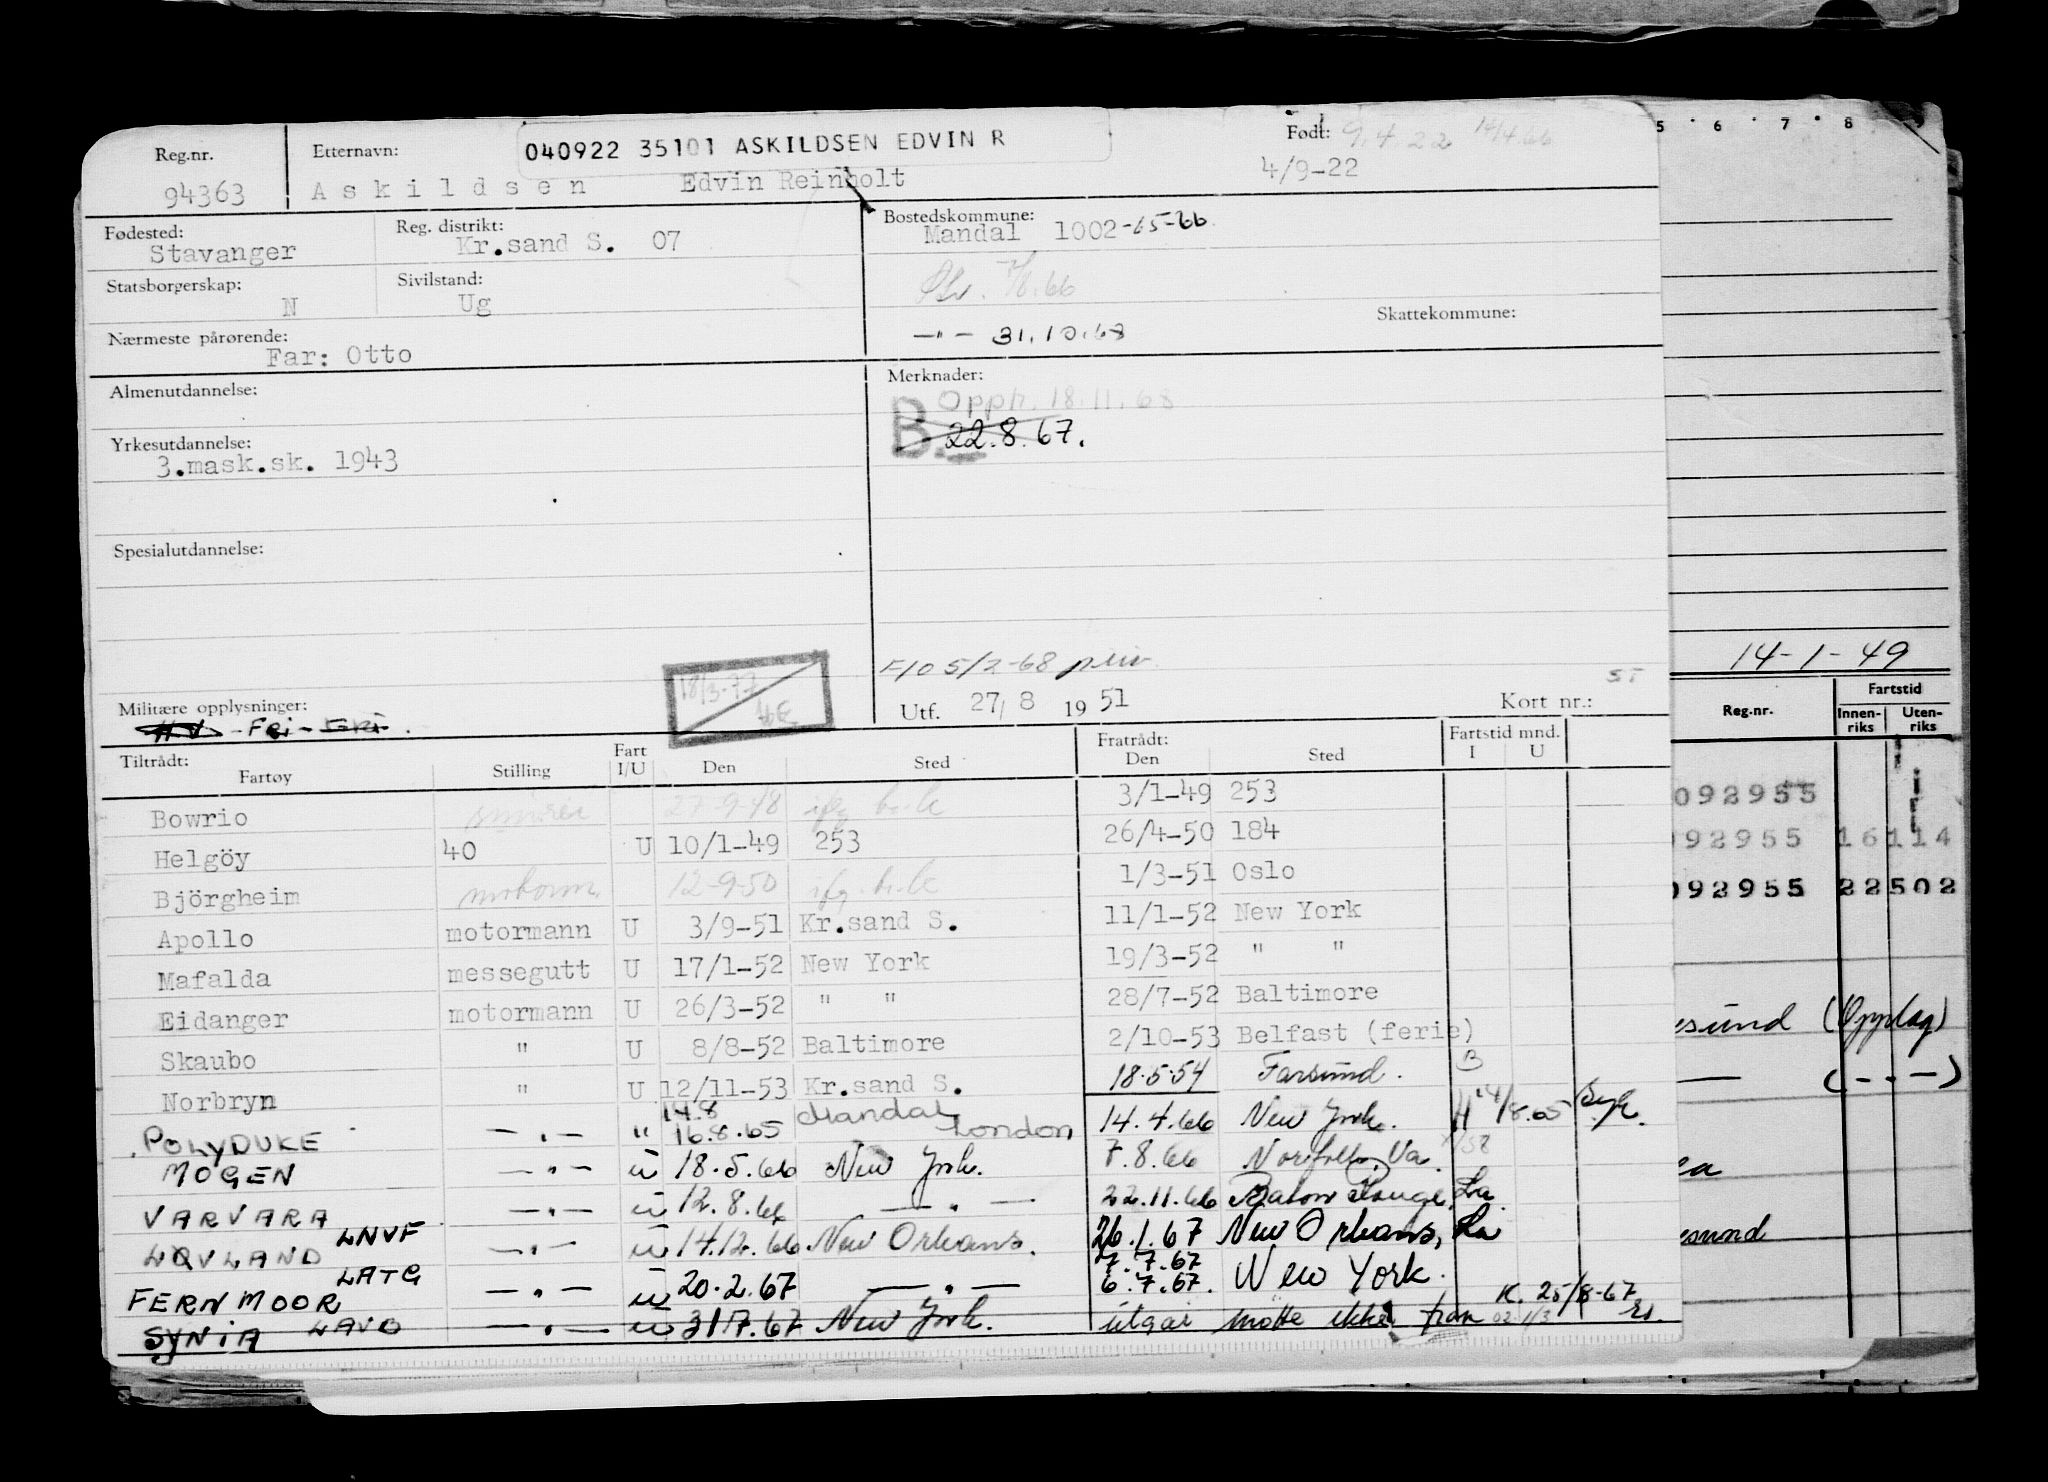 040922 35101 ASKILDSEN EDVIN R
Reg.nr. Etternavn: Født: 9.4.22 14/4.66
94363 Askildsen Edvin Reinholt 4/9-22
Fødested: Reg. distrikt: Bostedskommune:
Stavanger Kr.sand S. 07 Mandal 1002-65-66
Statsborgerskap: Sivilstand:
N Ug
Nærmeste pårørende: Skattekommune:
Far: Otto -"- 31.10.68
Almenutdannelse: Merknader:
Opph. 18.11.68
B. 22.8.67.
Yrkesutdannelse:
3.mask.sk. 1943
Spesialutdannelse:
F/O 5/2-68
18/3-77
Militære opplysninger: Utf. 27/8 1951 Kort nr.:
H.V. - Fri -
Tiltrådt: Fart Fratrådt: Fartstid mnd.
Fartøy Stilling I/U Den Sted Den Sted I U
Bowrio 27-9-48 3/1-49 253
Helgöy 40 U 10/1-49 253 26/4-50 184
Björgheim motorm. 12-9-50 1/3-51 Oslo
Apollo motormann U 3/9-51 Kr.sand S. 11/1-52 New York
Mafalda messegutt U 17/1-52 New York 19/3-52 " "
Eidanger motormann U 26/3-52 " " 28/7-52 Baltimore
Skaubo " U 8/8-52 Baltimore 2/10-53 Belfast (ferie)
Norbryn " U 12/11-53 Kr.sand S. 18.5.54 Farsund. B
POLYDUKE -"- " 14.8 16.8.65 Mandal London 14.4.66 New York. 14/8.65 Syk.
MOGEN -"- u 18.5.66 New York. 7.8.66 Norfolk, Va.
VARVARA -"- u 12.8.66 -"- 22.11.66 Baton Rouge, La
LOVLAND LNVF -"- u 14.12.66 New Orleans. 26.1.67 New Orleans, La
FERNMOOR LATG -"- u 20.2.67 -"- 7.7.67 6.7.67. New York.
SYNIA LAVO -"- u 31/7.67 New York. utgår møtte ikke fram K. 25/8-67
5 · 6 · 7 · 8
14-1-49
Reg.nr. Fartstid
Innen-riks Uten-riks
092955
092955 16114
092955 22502
esund (Opplag)
— (-"-)
ea
esund